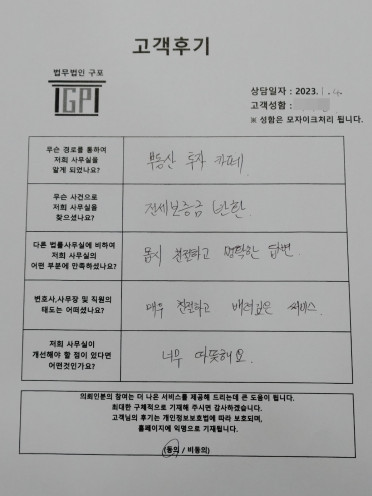 고객후기
법무법인 구포
GP
상담일자 : 2023. 1. 4.
고객성함 :
※ 성함은 모자이크처리 됩니다.
무슨 경로를 통하여
저희 사무실을
알게 되었나요?
부동산 투자 카페.
무슨 사건으로
저희 사무실을
찾으셨나요?
전세보증금 반환.
다른 법률사무실에 비하여
저희 사무실의
어떤 부분에 만족하셨나요?
몹시 친절하고 명확한 답변.
변호사,사무장 및 직원의
태도는 어떠셨나요?
매우 친절하고 배려깊은 서비스.
저희 사무실이
개선해야 할 점이 있다면
어떤것인가요?
너무 따뜻해요.
의뢰인분의 참여는 더 나은 서비스를 제공해 드리는데 큰 도움이 됩니다.
최대한 구체적으로 기재해 주시면 감사하겠습니다.
고객님의 후기는 개인정보보호법에 따라 보호되며,
홈페이지에 익명으로 기재됩니다.
(동의 / 비동의)